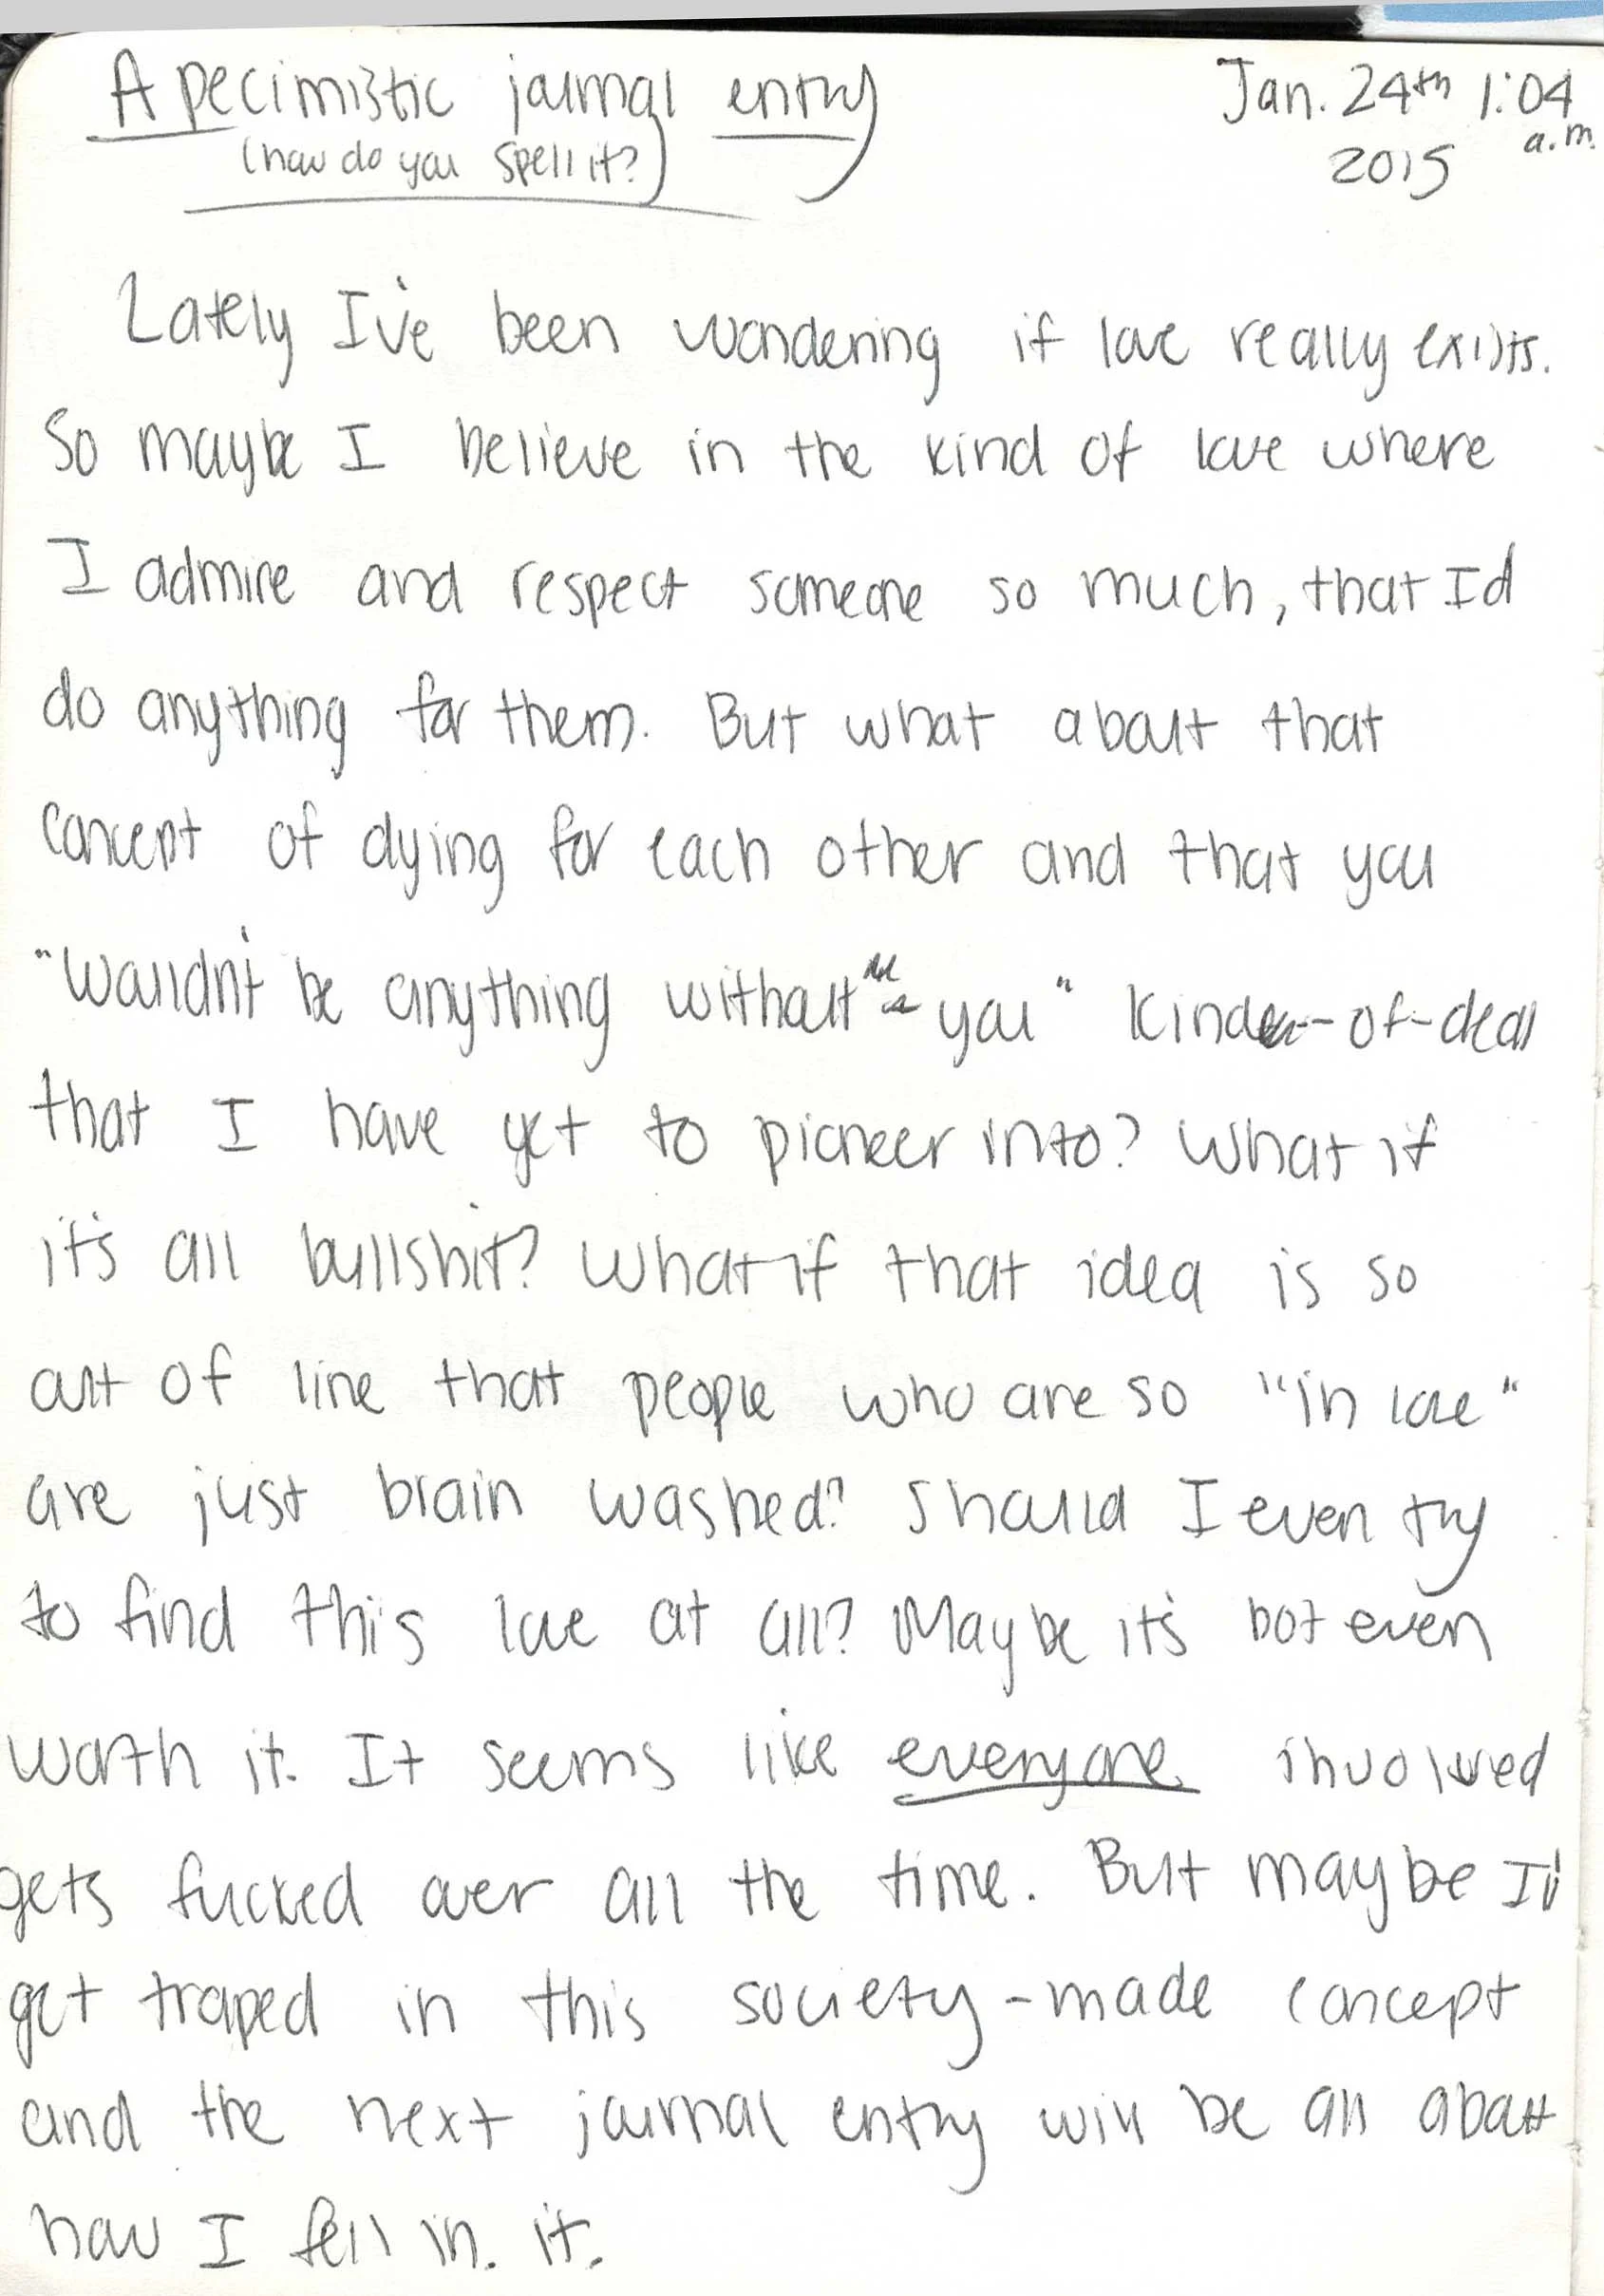 A pecimistic journal entry
(how do you spell it?)
Jan. 24th 1:04
a.m.
2015
Lately I've been wondering if love really exists.
So maybe I believe in the kind of love where
I admire and respect someone so much, that I'd
do anything for them. But what about that
concept of dying for each other and that you
"wouldn't be anything without you" kind-of-deal
that I have yet to pioneer into? What if
it's all bullshit? What if that idea is so
out of line that people who are so "in love"
are just brain washed? Should I even try
to find this love at all? Maybe it's not even
worth it. It seems like everyone involved
gets fucked over all the time. But maybe I'll
get traped in this society-made concept
and the next journal entry will be all about
how I fell in. it.